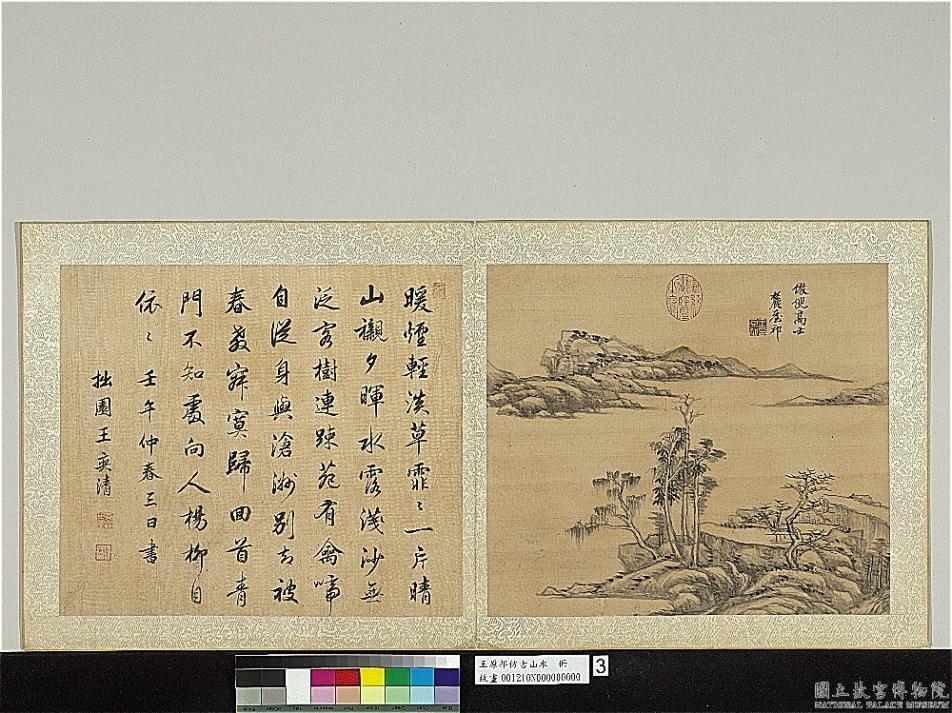 倣倪高士
麓臺祁
暖煙輕淡草霏〻一片晴
山襯夕暉水露淺沙無
泛客樹連疎苑有禽啼
自從身與滄洲別長被
春教寂寞歸回首青
門不知處向人楊柳自
依〻壬午仲春三日書
拙園王奕清
王原祁仿古山水 冊
故畫 001210N000000000
3
國立故宮博物院
NATIONAL PALACE MUSEUM